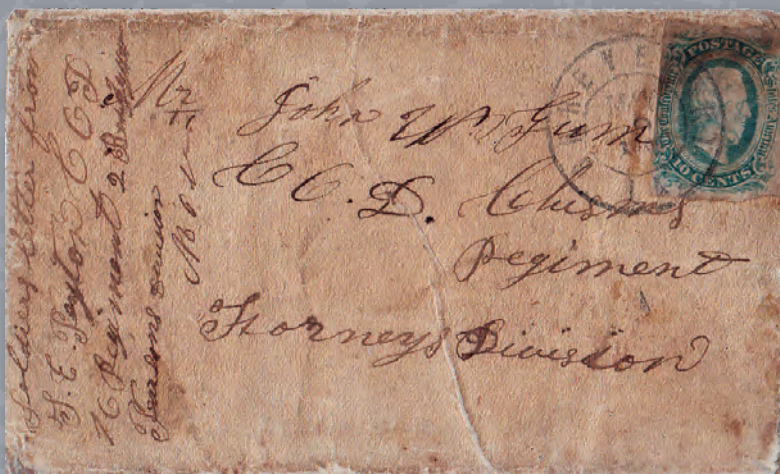 Soldiers letter from
S. E. Peyton CO D
16 Regimont 2
Pearsons division
Mr John W Gum
CO. D. Chisms
Regiment
Storneys Division
POSTAGE
10 CENTS